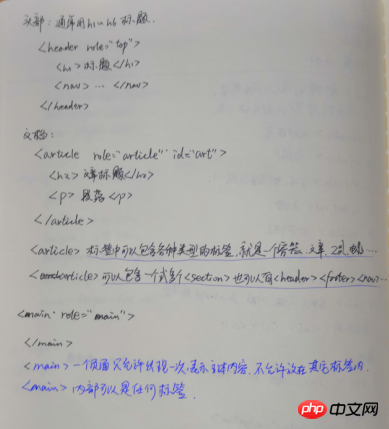 头部：通常用h1~h6 标题.
<header role="top">
<h1>标题</h1>
<nav> ... </nav>
</header>
文档：
<article role="article" id="art">
<h2>文章标题</h2>
<p>段落<p>
</article>
<article>标签中可以包含各种类型的标签，就是一个容器
<article>可以包含一个或多个<section>也可以有<header><footer><nav>...
<main role="main">
</main>
<main>一个页面只允许出现一次，表示主体内容，不允许放在其它标签内.
<main>内部可以是任何标签.
php 中文网